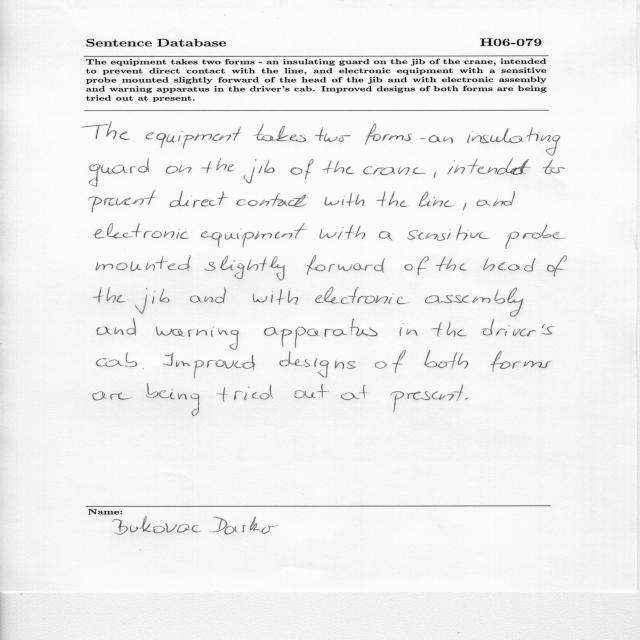 Sentence Database H06-079
The equipment takes two forms - an insulating guard on the jib of the crane, intended
to prevent direct contact with the line, and electronic equipment with a sensitive
probe mounted slightly forward of the head of the jib and with electronic assembly
and warning apparatus in the driver's cab. Improved designs of both forms are being
tried out at present.
The equipment takes two forms - an insulating
guard on the jib of the crane, intended to
prevent direct contact with the line, and
electronic equipment with a sensitive probe
mounted slightly forward of the head of
the jib and with electronic assembly
and warning apparatus in the driver's
cab. Improved designs of both forms
are being tried out at present.
Name:
Bukovac Darko